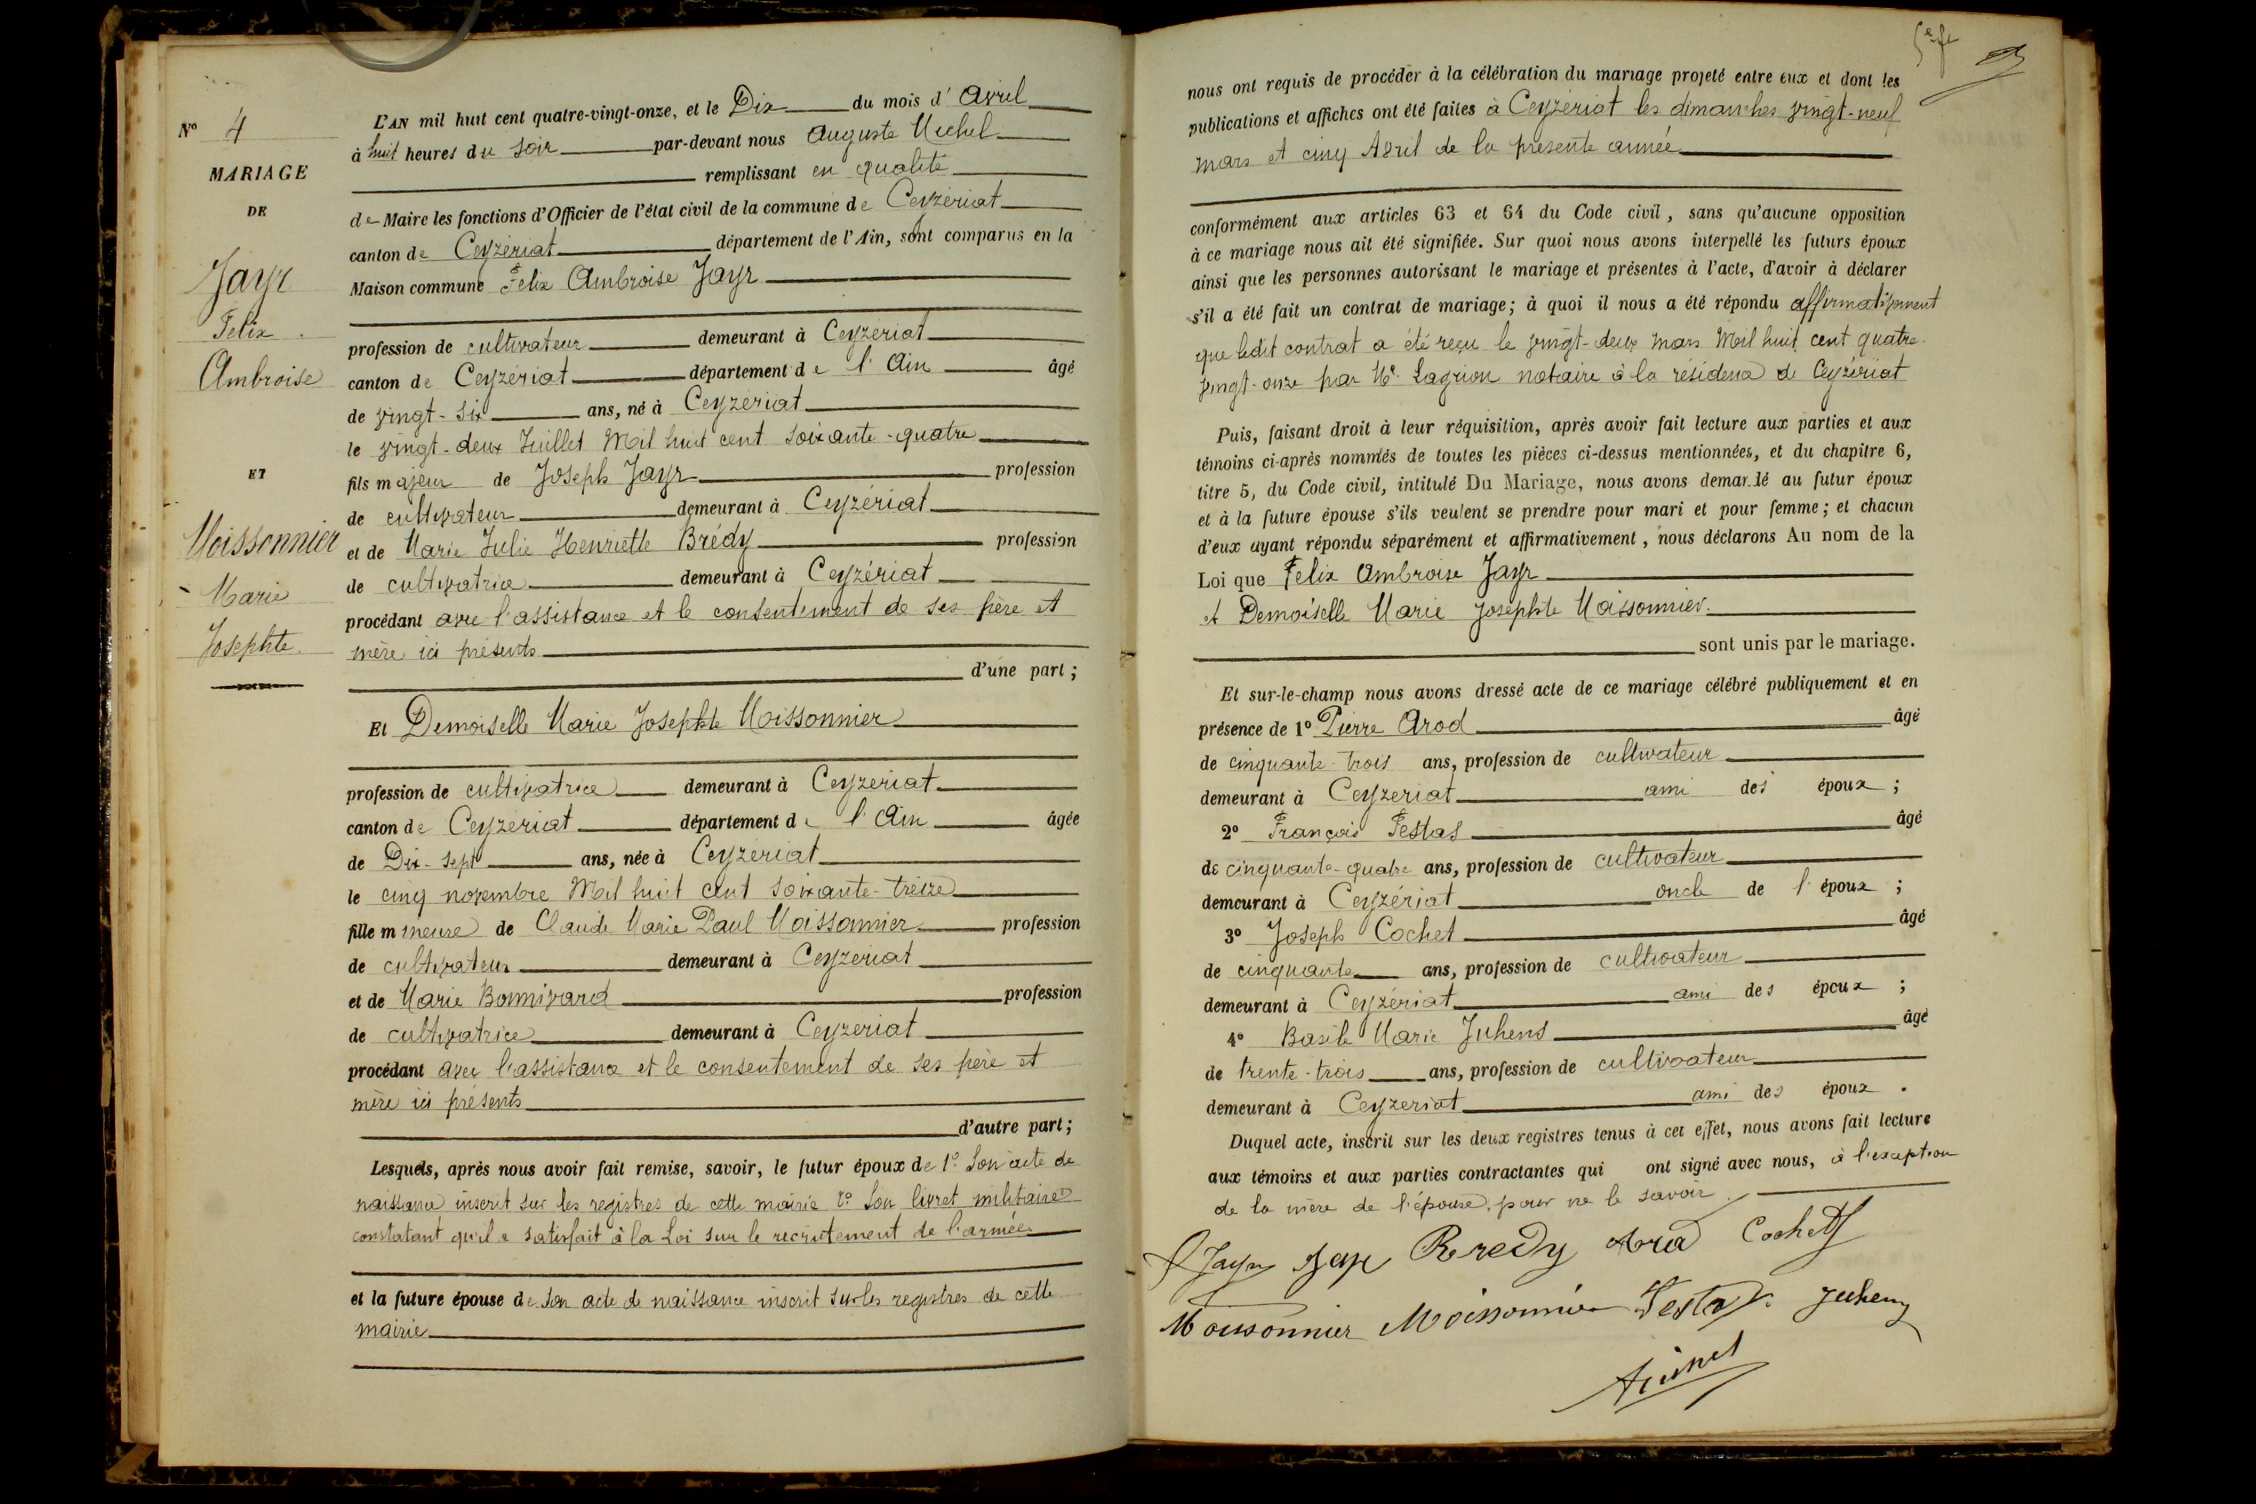 Nº 4
MARIAGE
DE
Jayr
Felix
Ambroise
ET
Moissonnier
Marie
Josephte
L'AN mil huit cent quatre-vingt-onze, et le Dix du mois d' Avril
à huit heures du soir par-devant nous Auguste Michel
remplissant en qualité
de Maire les fonctions d'Officier de l'état civil de la commune de Ceyzériat
canton de Ceyzériat département de l'Ain, sont comparus en la
Maison commune Felix Ambroise Jayr
profession de cultivateur demeurant à Ceyzériat
canton de Ceyzériat département de l'Ain âgé
de vingt-six ans, né à Ceyzeriat
le vingt-deux Juillet Mil huit cent soixante-quatre
fils majeur de Joseph Jayr profession
de cultivateur demeurant à Ceyzériat
et de Marie Julie Henriette Brédy profession
de cultivatrice demeurant à Ceyzériat
procédant avec l'assistance et le consentement de ses père et
mère ici présents
d'une part ;
Et Demoiselle Marie Josephte Moissonnier
profession de cultivatrice demeurant à Ceyzeriat
canton de Ceyzeriat département de l'Ain âgée
de Dix-sept ans, née à Ceyzeriat
le cinq novembre Mil huit cent soixante-treize
fille mineure de Claude Marie Paul Moissonnier profession
de cultivateur demeurant à Ceyzeriat
et de Marie Bonnivard profession
de cultivatrice demeurant à Ceyzeriat
procédant avec l'assistance et le consentement de ses père et
mère ici présents
d'autre part ;
Lesquels, après nous avoir fait remise, savoir, le futur époux de 1º Son acte de
naissance inscrit sur les registres de cette mairie 2º Son livret militaire
constatant qu'il a satisfait à la Loi sur le recrutement de l'armée
et la future épouse de son acte de naissance inscrit sur les registres de cette
mairie
5e ft
nous ont requis de procéder à la célébration du mariage projeté entre eux et dont les
publications et affiches ont été faites à Ceyzériat les dimanches vingt-neuf
mars et cinq Avril de la présente année
conformément aux articles 63 et 64 du Code civil, sans qu'aucune opposition
à ce mariage nous ait été signifiée. Sur quoi nous avons interpellé les futurs époux
ainsi que les personnes autorisant le mariage et présentes à l'acte, d'avoir à déclarer
s'il a été fait un contrat de mariage ; à quoi il nous a été répondu affirmativement
que ledit contrat a été reçu le vingt-deux mars Mil huit cent quatre-
vingt-onze par Me Lagrion notaire à la résidence de Ceyzériat
Puis, faisant droit à leur réquisition, après avoir fait lecture aux parties et aux
témoins ci-après nommés de toutes les pièces ci-dessus mentionnées, et du chapitre 6,
titre 5, du Code civil, intitulé Du Mariage, nous avons demandé au futur époux
et à la future épouse s'ils veulent se prendre pour mari et pour femme ; et chacun
d'eux ayant répondu séparément et affirmativement, nous déclarons Au nom de la
Loi que Felix Ambroise Jayr
et Demoiselle Marie Josephte Moissonnier
sont unis par le mariage.
Et sur-le-champ nous avons dressé acte de ce mariage célébré publiquement et en
présence de 1º Pierre Arod âgé
de cinquante-trois ans, profession de cultivateur
demeurant à Ceyzeriat ami des époux ;
2º François Festas âgé
de cinquante-quatre ans, profession de cultivateur
demeurant à Ceyzériat oncle de l'époux ;
3º Joseph Cochet âgé
de cinquante ans, profession de cultivateur
demeurant à Ceyzériat ami des époux ;
4º Basile Marie Juhens âgé
de trente-trois ans, profession de cultivateur
demeurant à Ceyzeriat ami des époux .
Duquel acte, inscrit sur les deux registres tenus à cet effet, nous avons fait lecture
aux témoins et aux parties contractantes qui ont signé avec nous, à l'exception
de la mère de l'épouse, pour ne le savoir.
f Jayr Jayr Bredy Arod Cochet
Moissonnier Moissonnier Festas Juhens
Michel